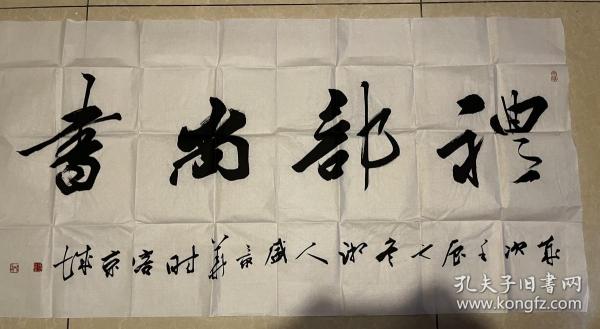 禮部尚書
歲次壬辰之冬湖人盛京華时客京城
孔夫子旧书网
www.kongfz.com